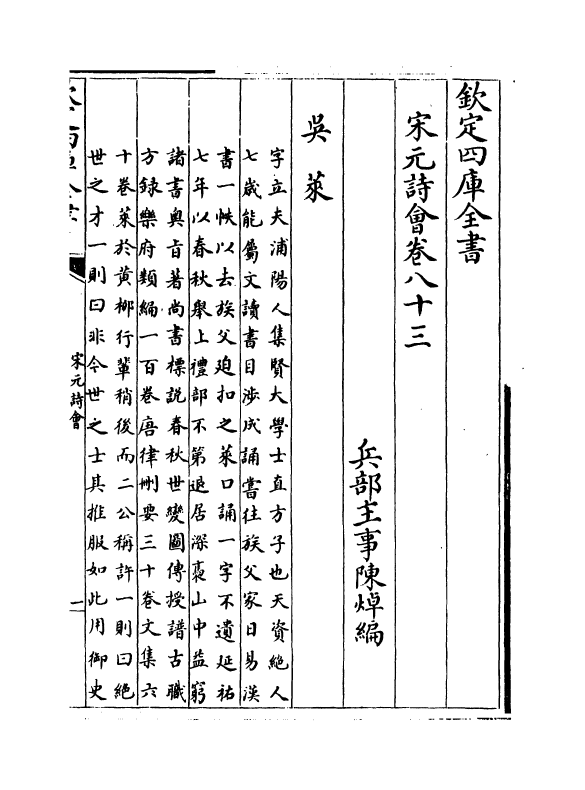 欽定四庫全書
宋元詩會卷八十三
兵部主事陳焯編
吳萊
字立夫浦陽人集賢大學士直方子也天資絶人
七歲能屬文讀書目涉成誦嘗往族父家日易漢
書一帙以去族父廹扣之萊口誦一字不遺延祐
七年以春秋舉上禮部不第退居深褭山中益窮
諸書奥㫖著尚書標說春秋世變圖傳授譜古職
方録樂府類編一百卷唐律刪要三十卷文集六
十卷萊於黄栁行輩稍後而二公稱許一則曰絶
世之才一則曰非今世之士其推服如此用御史
宋元詩會
一